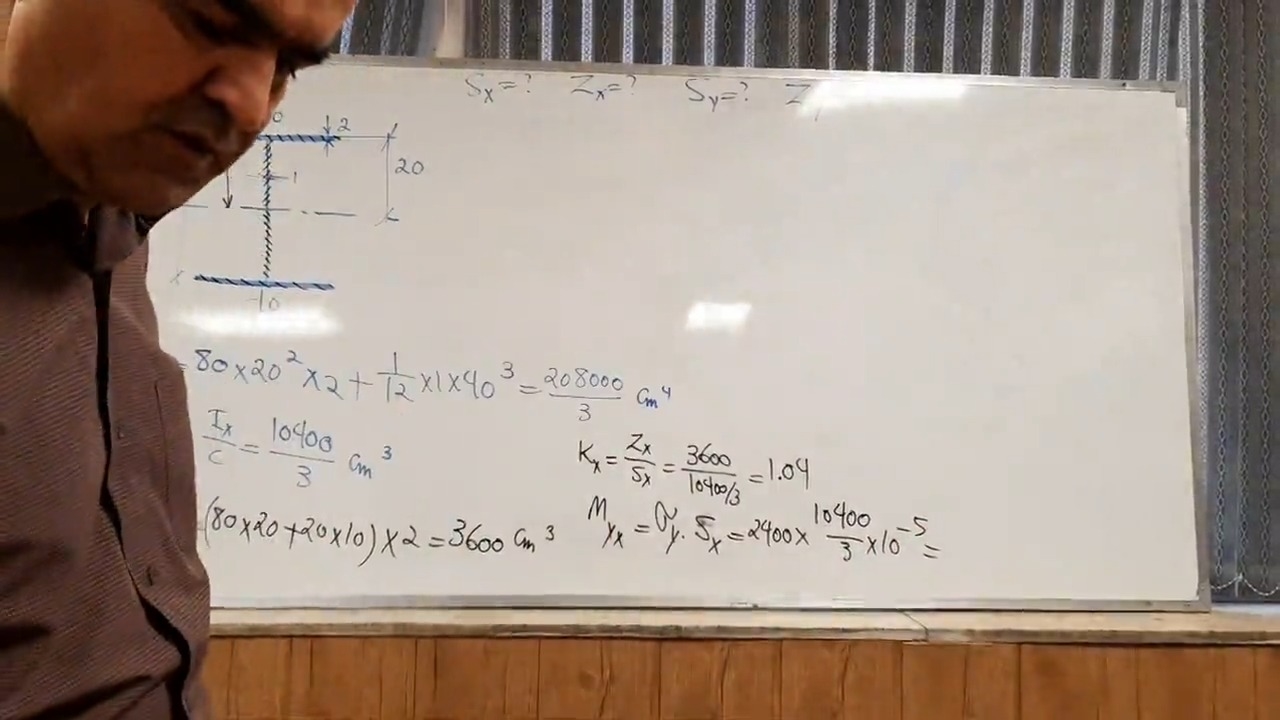 Sx=? Zx=? Sy=? Z
0 2
20
1
x
10
=80×20²×2+1/12×1×40³=208000/3 cm⁴
Ix/C=10400/3 cm³
Kx=Zx/Sx=3600/(10400/3)=1.04
(80×20+20×10)×2=3600 cm³
Myx=σy.Sx=2400×10400/3×10⁻⁵=